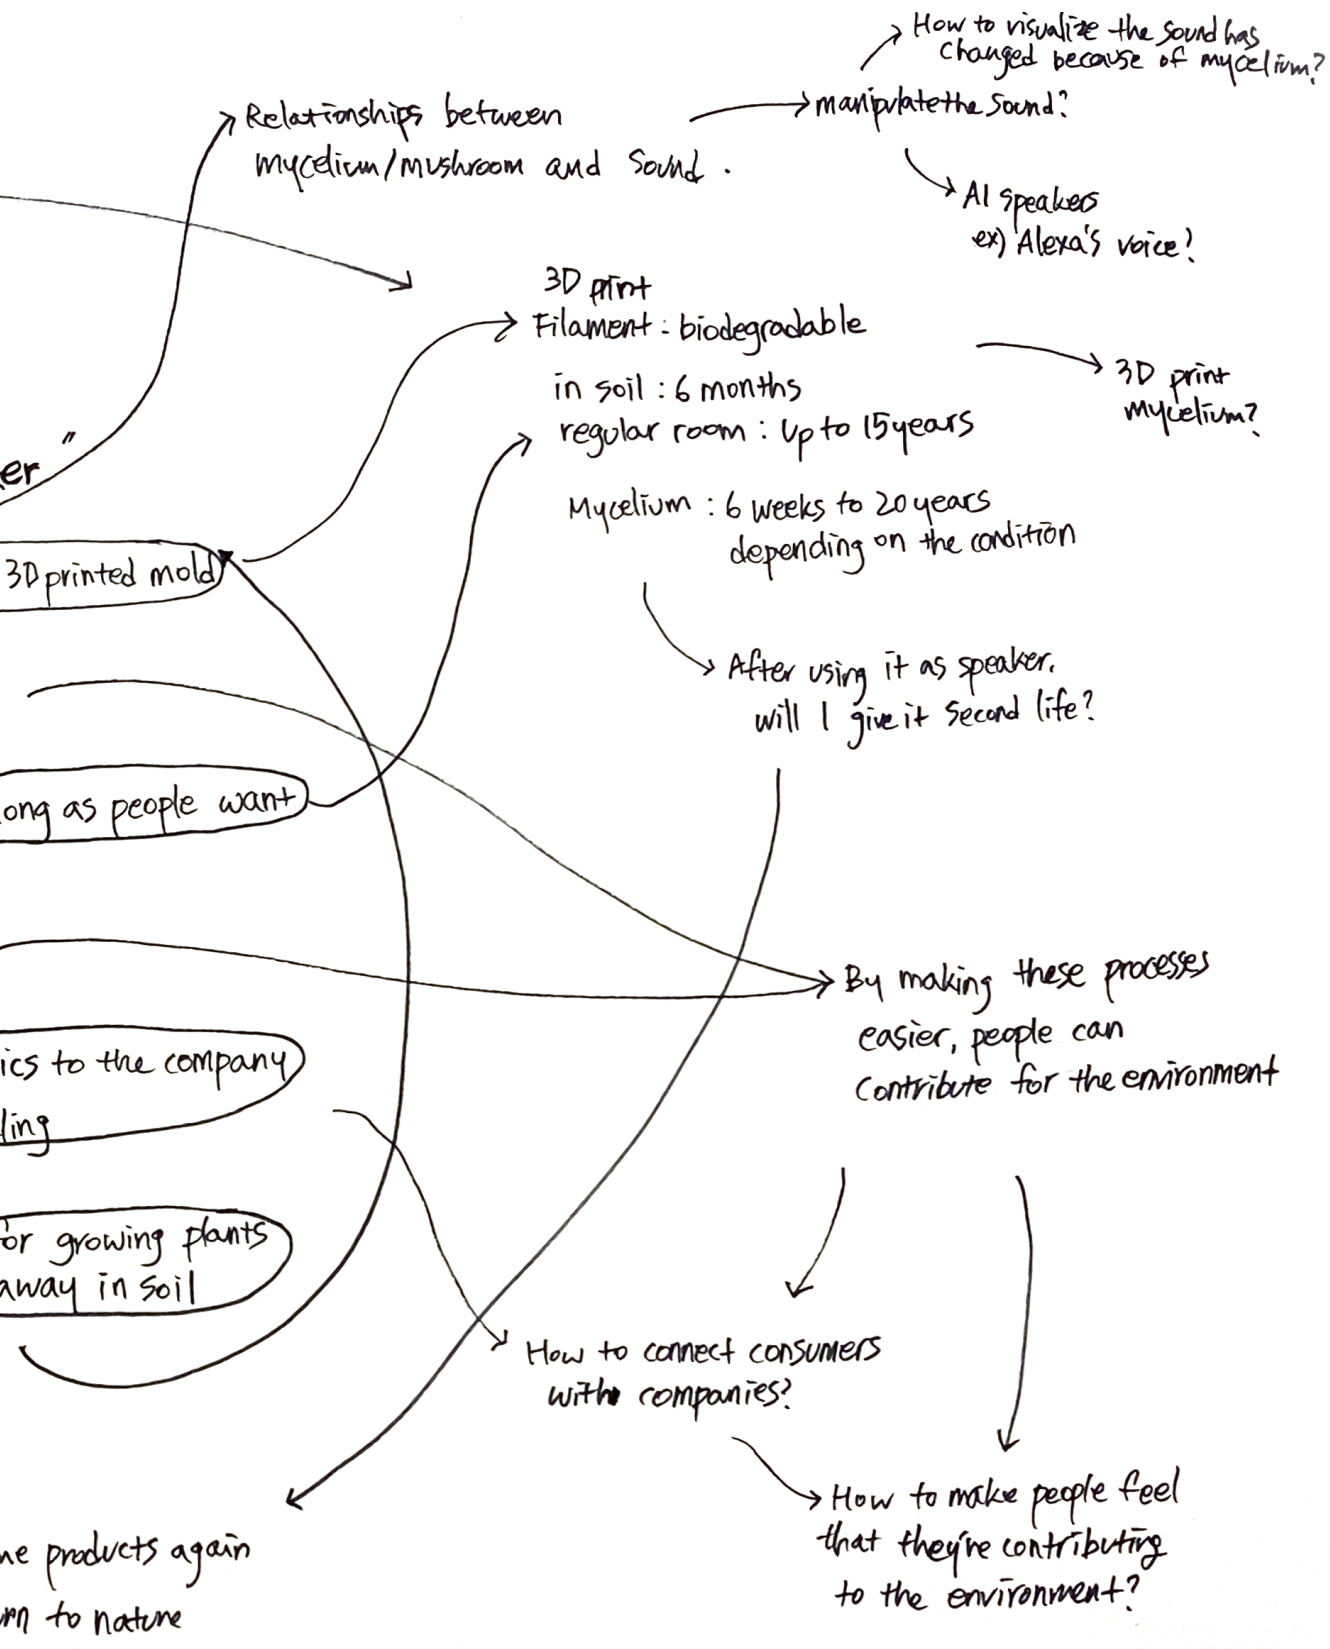 How to visualize the sound has
changed because of mycelium?
manipulate the sound?
Relationships between
mycelium/mushroom and sound.
AI speakers
ex) Alexa's voice?
3D print
Filament: biodegradable
in soil: 6 months
regular room: up to 15 years
3D print
mycelium?
Mycelium: 6 weeks to 20 years
depending on the condition
er "
3D printed mold
After using it as speaker.
will I give it second life?
ong as people want
By making these processes
easier, people can
contribute for the environment
ics to the company
ling
or growing plants
away in soil
How to connect consumers
with companies?
How to make people feel
that they're contributing
to the environment?
me products again
rn to nature